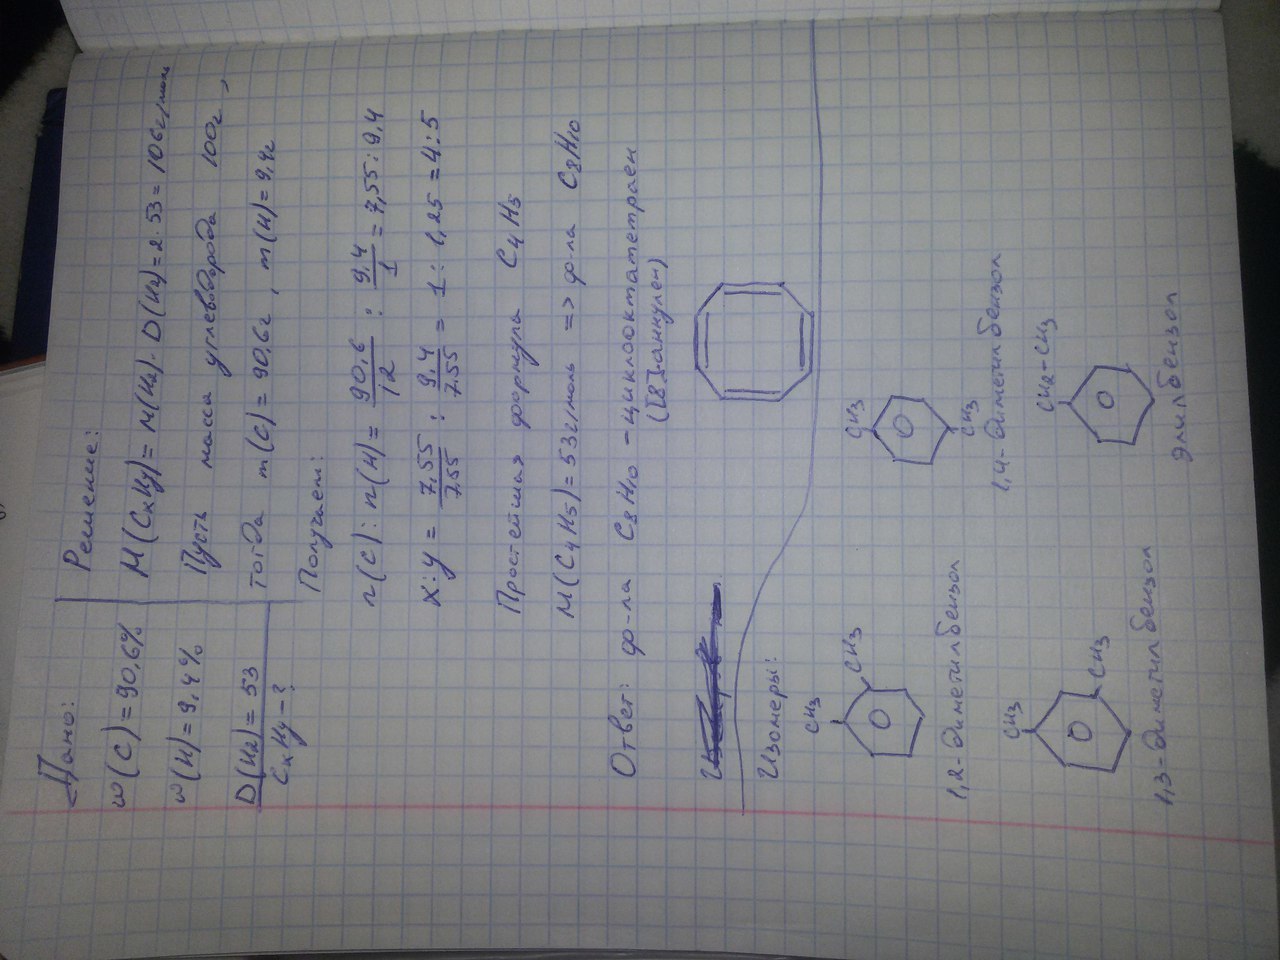 Дано:
ω(C) = 90,6%
ω(H) = 9,4%
D(H₂) = 53
CₓHᵧ – ?
Решение:
M(CₓHᵧ) = M(H₂)·D(H₂) = 2·53 = 106г/моль
Пусть масса углеводорода 100г,
тогда m(C) = 90,6г, m(H) = 9,4г
Получаем:
n(C) : n(H) = 90,6/12 : 9,4/1 = 7,55 : 9,4
x : y = 7,55/7,55 : 9,4/7,55 = 1 : 1,25 = 4 : 5
Простейшая формула C₄H₅
M(C₄H₅) = 53г/моль => ф-ла C₈H₁₀
Ответ: ф-ла C₈H₁₀ – циклооктатетраен
([8]аннулен)
Изомеры:
CH₃
CH₃
1,2-диметилбензол
CH₃
CH₃
1,4-диметилбензол
CH₃
CH₃
1,3-диметилбензол
CH₂–CH₃
этилбензол